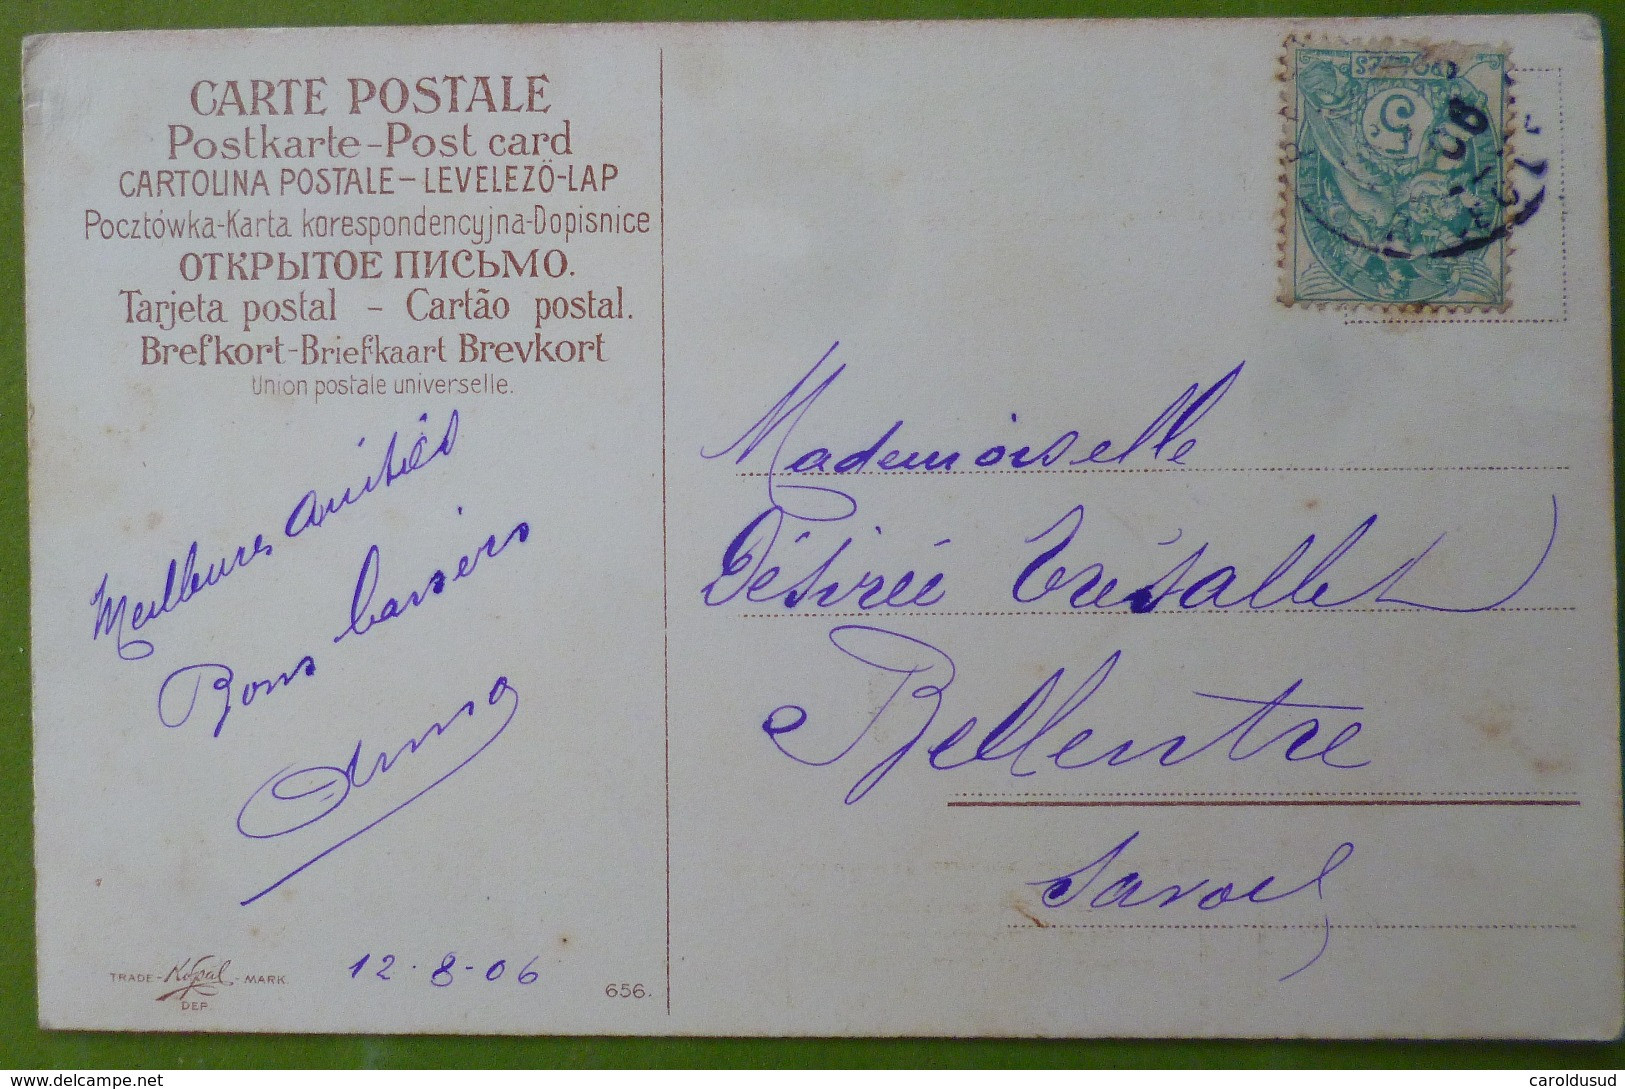 CARTE POSTALE
Postkarte-Post card
CARTOLINA POSTALE-LEVELEZÖ-LAP
Pocztówka-Karta korespondencyjna-Dopisnice
ОТКРЫТОЕ ПИСЬМО.
Tarjeta postal - Cartão postal.
Brefkort-Briefkaart Brevkort
Union postale universelle.
Meilleures amitiés
Bons baisers
Anna
12-8-06
TRADE-Kopal-MARK.
DEP.
656.
POSTES
5
06
Mademoiselle
Désirée Trésallet
Bellentre
Savoie
delcampe.net
caroldusud